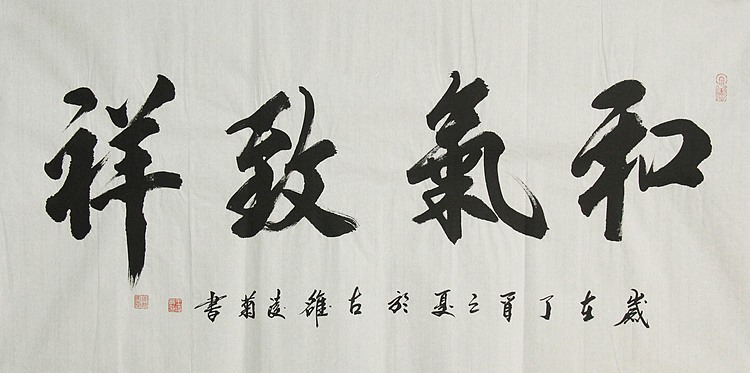 和氣致祥
歲在丁酉之夏於古菊書